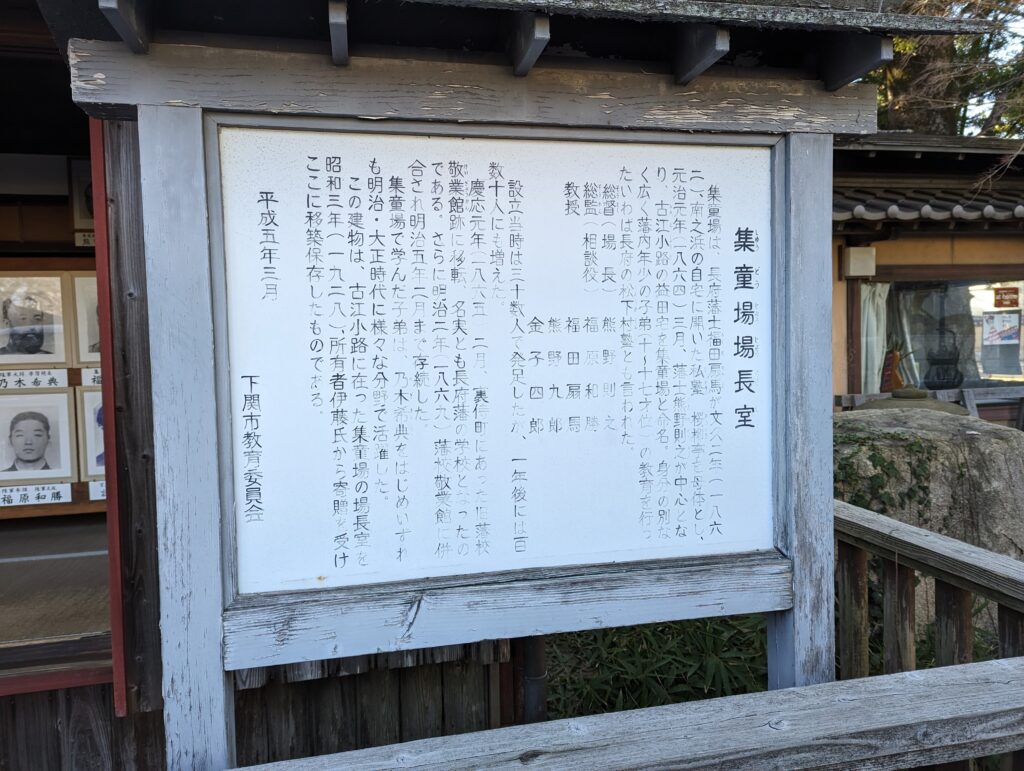 集童場場長室
集童場は、長府藩士福田扇馬が文久二年(一八六
二)、南之浜の自宅に開いた私塾 桜柳亭を母体とし、
元治元年(一八六四)三月、藩士熊野則之が中心とな
り、古江小路の益田宅を集童場と命名。身分の別な
く広く藩内年少の子弟十~十七才位の教育を行っ
たいわば長府の松下村塾とも言われた。
総督(場長) 熊野則之
総監(相談役) 福原和勝
教授 福田扇馬
熊野九郎
金子四郎
設立当時は三十数人で発足したが、一年後には百
数十人にも増えた。
慶応元年(一八六五)二月、裏侍町にあった旧藩校
敬業館跡に移転、名実とも長府藩の学校となったの
である。さらに明治二年(一八六九)藩校敬業館に併
合され明治五年二月まで存続した。
集童場で学んだ子弟は、乃木希典をはじめいずれ
も明治・大正時代に様々な分野で活躍した。
この建物は、古江小路に在った集童場の場長室を
昭和三年(一九二八)、所有者伊藤氏から寄贈を受け
ここに移築保存したものである。
平成五年三月
下関市教育委員会
乃木希典
福原和勝